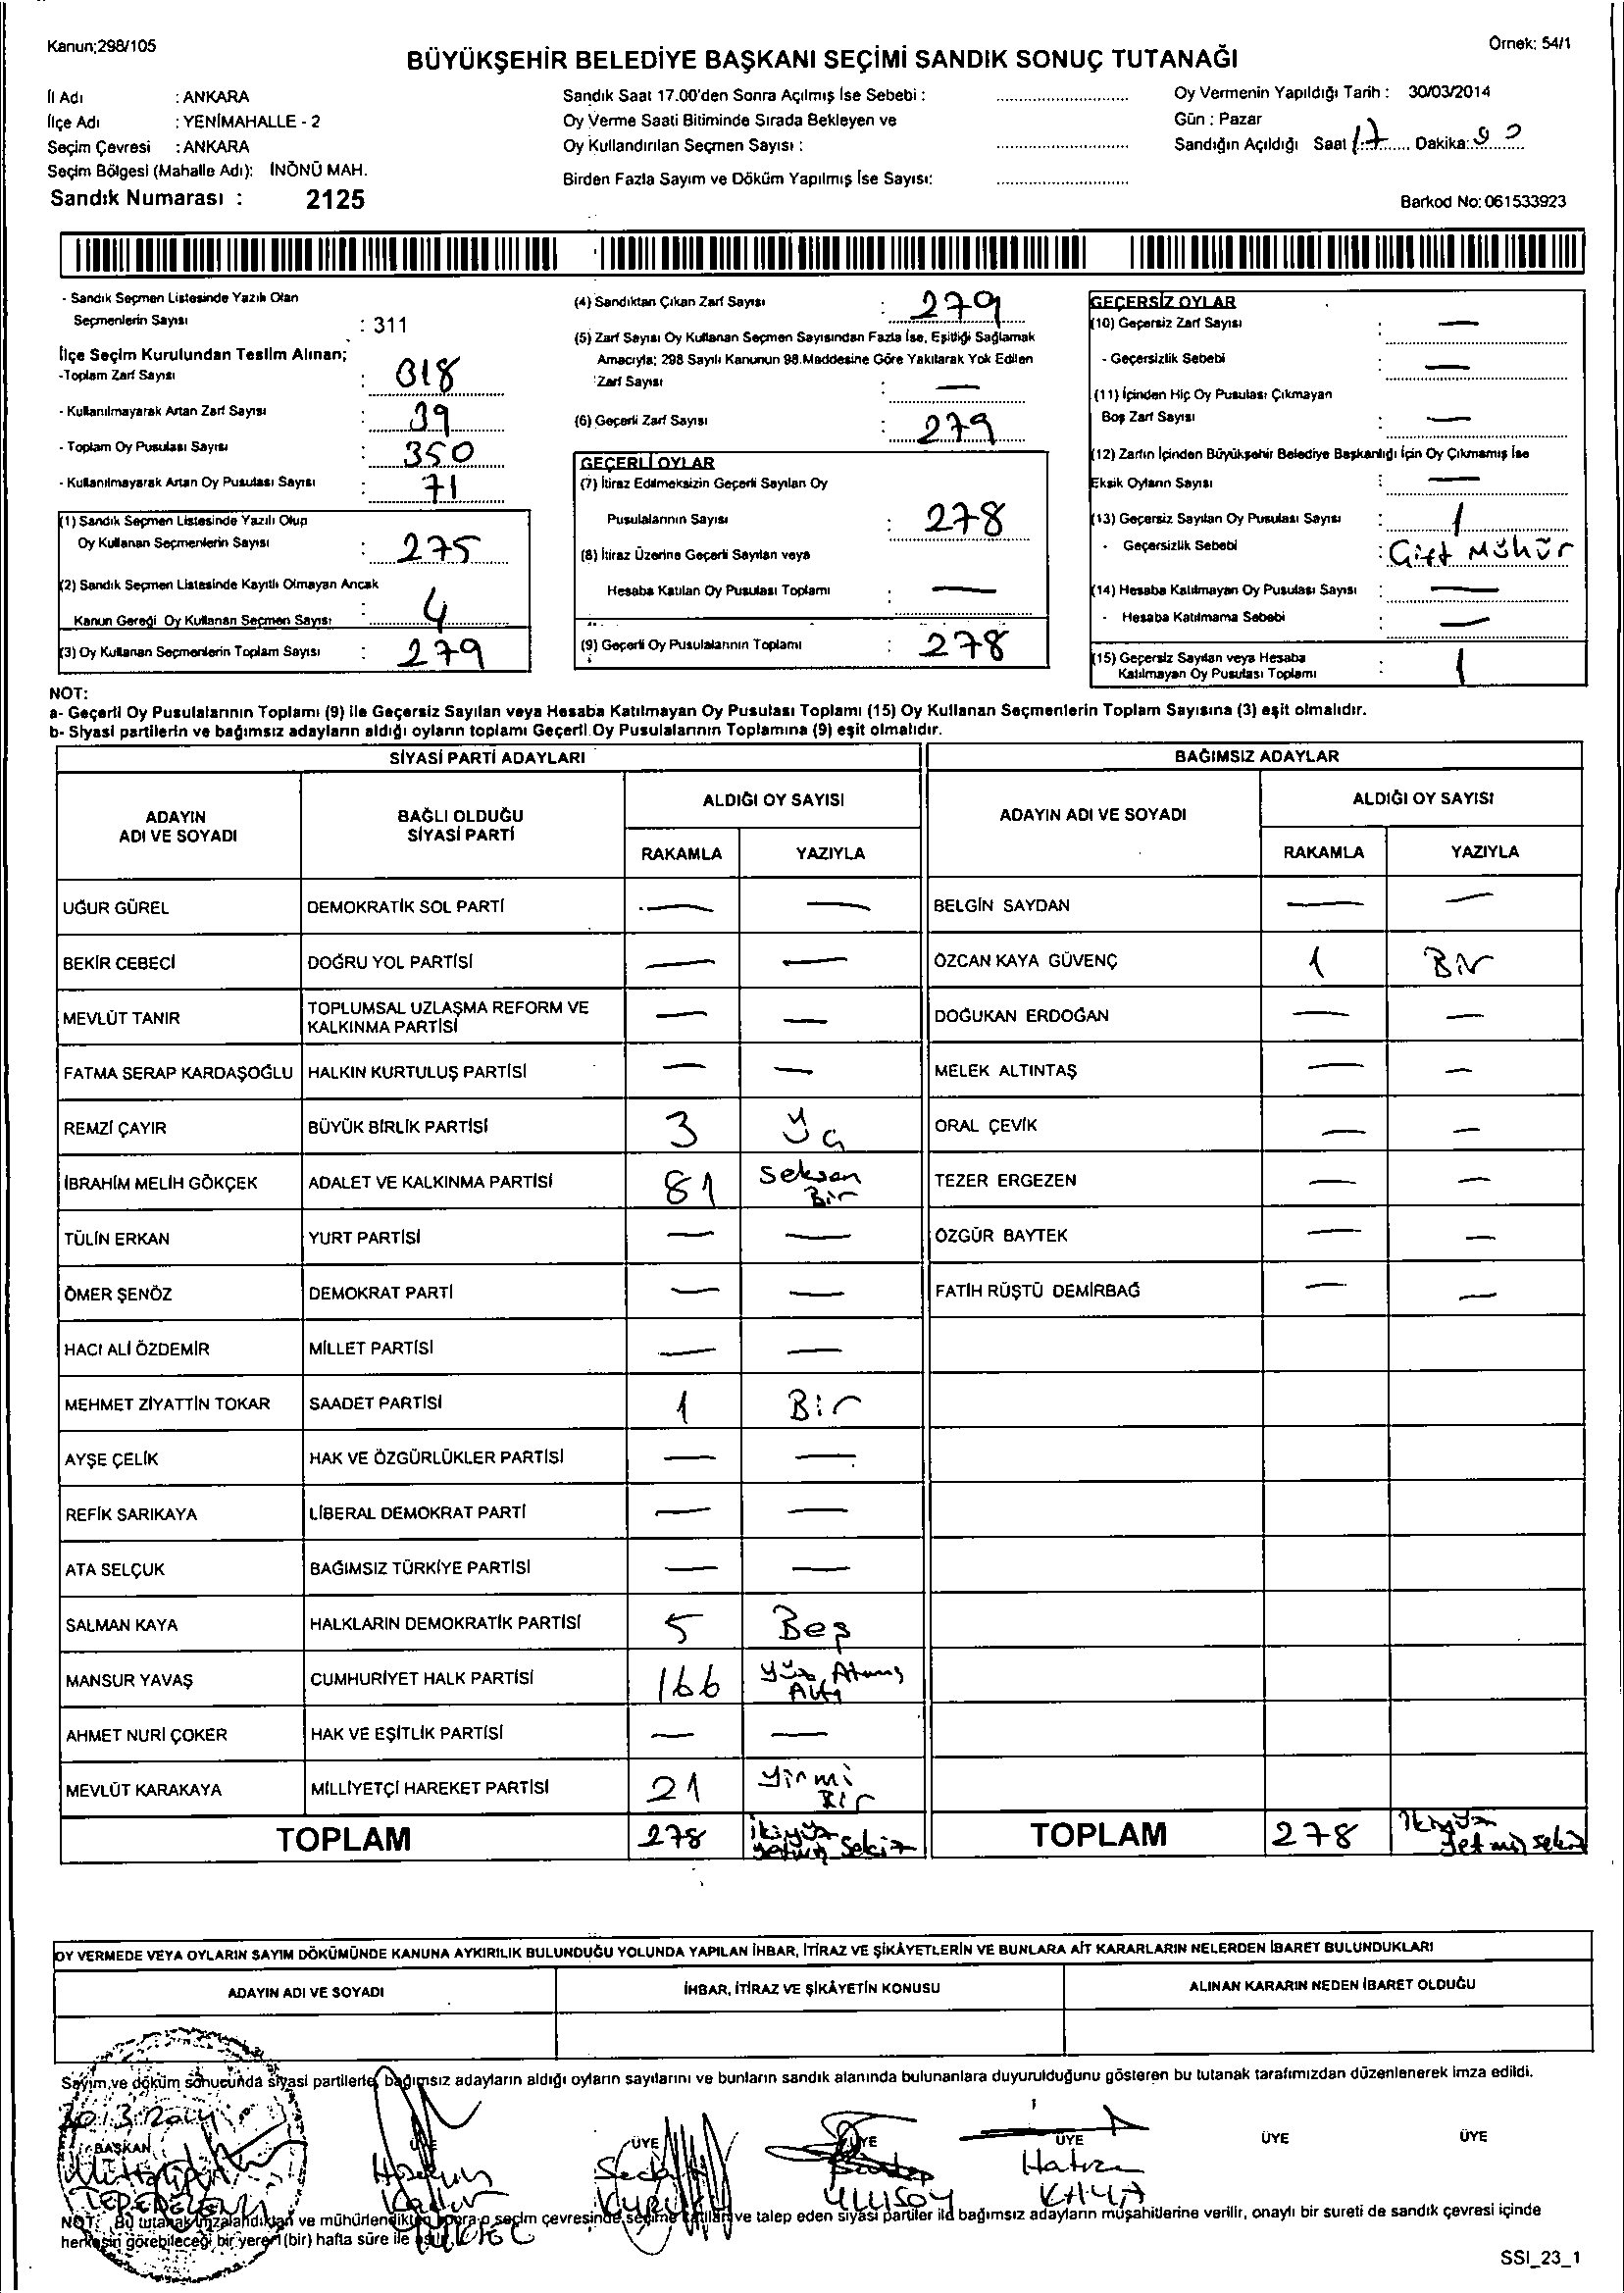 Kanun;298/105
Örnek: 54/1
BÜYÜKŞEHİR BELEDİYE BAŞKANI SEÇİMİ SANDIK SONUÇ TUTANAĞI
İl Adı : ANKARA
İlçe Adı : YENİMAHALLE - 2
Seçim Çevresi : ANKARA
Seçim Bölgesi (Mahalle Adı): İNÖNÜ MAH.
Sandık Numarası : 2125
Sandık Saat 17.00'den Sonra Açılmış İse Sebebi :
Oy Verme Saati Bitiminde Sırada Bekleyen ve
Oy Kullandırılan Seçmen Sayısı :
Birden Fazla Sayım ve Döküm Yapılmış İse Sayısı:
Oy Vermenin Yapıldığı Tarih : 30/03/2014
Gün : Pazar
Sandığın Açıldığı Saat 17 Dakika:
Barkod No: 061533923
- Sandık Seçmen Listesinde Yazılı Olan
Seçmenlerin Sayısı : 311
İlçe Seçim Kurulundan Teslim Alınan;
-Toplam Zarf Sayısı : 318
- Kullanılmayarak Artan Zarf Sayısı : 39
- Toplam Oy Pusulası Sayısı : 350
- Kullanılmayarak Artan Oy Pusulası Sayısı : 71
(1) Sandık Seçmen Listesinde Yazılı Olup
Oy Kullanan Seçmenlerin Sayısı : 275
(2) Sandık Seçmen Listesinde Kayıtlı Olmayan Ancak
Kanun Gereği Oy Kullanan Seçmen Sayısı : 4
(3) Oy Kullanan Seçmenlerin Toplam Sayısı : 279
(4) Sandıktan Çıkan Zarf Sayısı : 279
(5) Zarf Sayısı Oy Kullanan Seçmen Sayısından Fazla İse, Eşitliği Sağlamak
Amacıyla; 298 Sayılı Kanunun 98.Maddesine Göre Yakılarak Yok Edilen
Zarf Sayısı : —
(6) Geçerli Zarf Sayısı : 279
GEÇERLİ OYLAR
(7) İtiraz Edilmeksizin Geçerli Sayılan Oy
Pusulalarının Sayısı : 278
(8) İtiraz Üzerine Geçerli Sayılan veya
Hesaba Katılan Oy Pusulası Toplamı : —
(9) Geçerli Oy Pusulalarının Toplamı : 278
GEÇERSİZ OYLAR
(10) Geçersiz Zarf Sayısı : —
- Geçersizlik Sebebi : —
(11) İçinden Hiç Oy Pusulası Çıkmayan
Boş Zarf Sayısı : —
(12) Zarfın İçinden Büyükşehir Belediye Başkanlığı İçin Oy Çıkmamış İse
Eksik Oyların Sayısı : —
(13) Geçersiz Sayılan Oy Pusulası Sayısı : 1
- Geçersizlik Sebebi : Çift Mühür
(14) Hesaba Katılmayan Oy Pusulası Sayısı : —
- Hesaba Katılmama Sebebi : —
(15) Geçersiz Sayılan veya Hesaba
Katılmayan Oy Pusulası Toplamı : 1
NOT:
a- Geçerli Oy Pusulalarının Toplamı (9) ile Geçersiz Sayılan veya Hesaba Katılmayan Oy Pusulası Toplamı (15) Oy Kullanan Seçmenlerin Toplam Sayısına (3) eşit olmalıdır.
b- Siyasi partilerin ve bağımsız adayların aldığı oyların toplamı Geçerli Oy Pusulalarının Toplamına (9) eşit olmalıdır.
SİYASİ PARTİ ADAYLARI
ADAYIN ADI VE SOYADI
BAĞLI OLDUĞU SİYASİ PARTİ
ALDIĞI OY SAYISI
RAKAMLA YAZIYLA
UĞUR GÜREL DEMOKRATİK SOL PARTİ — —
BEKİR CEBECİ DOĞRU YOL PARTİSİ — —
MEVLÜT TANIR TOPLUMSAL UZLAŞMA REFORM VE KALKINMA PARTİSİ — —
FATMA SERAP KARDAŞOĞLU HALKIN KURTULUŞ PARTİSİ — —
REMZİ ÇAYIR BÜYÜK BİRLİK PARTİSİ 3 Üç
İBRAHİM MELİH GÖKÇEK ADALET VE KALKINMA PARTİSİ 81 Seksen Bir
TÜLİN ERKAN YURT PARTİSİ — —
ÖMER ŞENÖZ DEMOKRAT PARTİ — —
HACI ALİ ÖZDEMİR MİLLET PARTİSİ — —
MEHMET ZİYATTİN TOKAR SAADET PARTİSİ 1 Bir
AYŞE ÇELİK HAK VE ÖZGÜRLÜKLER PARTİSİ — —
REFİK SARIKAYA LİBERAL DEMOKRAT PARTİ — —
ATA SELÇUK BAĞIMSIZ TÜRKİYE PARTİSİ — —
SALMAN KAYA HALKLARIN DEMOKRATİK PARTİSİ 5 Beş
MANSUR YAVAŞ CUMHURİYET HALK PARTİSİ 166 Yüz Atmış Altı
AHMET NURİ ÇOKER HAK VE EŞİTLİK PARTİSİ — —
MEVLÜT KARAKAYA MİLLİYETÇİ HAREKET PARTİSİ 21 Yirmi Bir
TOPLAM 278 İkiyüz Yetmiş Sekiz
BAĞIMSIZ ADAYLAR
ADAYIN ADI VE SOYADI
ALDIĞI OY SAYISI
RAKAMLA YAZIYLA
BELGİN SAYDAN — —
ÖZCAN KAYA GÜVENÇ 1 Bir
DOĞUKAN ERDOĞAN — —
MELEK ALTINTAŞ — —
ORAL ÇEVİK — —
TEZER ERGEZEN — —
ÖZGÜR BAYTEK — —
FATİH RÜŞTÜ DEMİRBAĞ — —
TOPLAM 278 İkiyüz Yetmiş Sekiz
OY VERMEDE VEYA OYLARIN SAYIM DÖKÜMÜNDE KANUNA AYKIRILIK BULUNDUĞU YOLUNDA YAPILAN İHBAR, İTİRAZ VE ŞİKÂYETLERİN VE BUNLARA AİT KARARLARIN NELERDEN İBARET BULUNDUKLARI
ADAYIN ADI VE SOYADI
İHBAR, İTİRAZ VE ŞİKÂYETİN KONUSU
ALINAN KARARIN NEDEN İBARET OLDUĞU
Sayım ve döküm sonucunda siyasi partilerle, bağımsız adayların aldığı oyların sayılarını ve bunların sandık alanında bulunanlara duyurulduğunu gösteren bu tutanak tarafımızdan düzenlenerek imza edildi.
30.3.2014
BAŞKAN ÜYE ÜYE ÜYE ÜYE ÜYE ÜYE
Seda Hatice
ULUSOY KAYA
NOT: Bu tutanak imzalandıktan ve mühürlendikten sonra o seçim çevresinde seçime katılan ve talep eden siyasi partiler ile bağımsız adayların müşahitlerine verilir, onaylı bir sureti de sandık çevresi içinde
herkesin görebileceği bir yere 1(bir) hafta süre ile asılır.
SSI_23_1